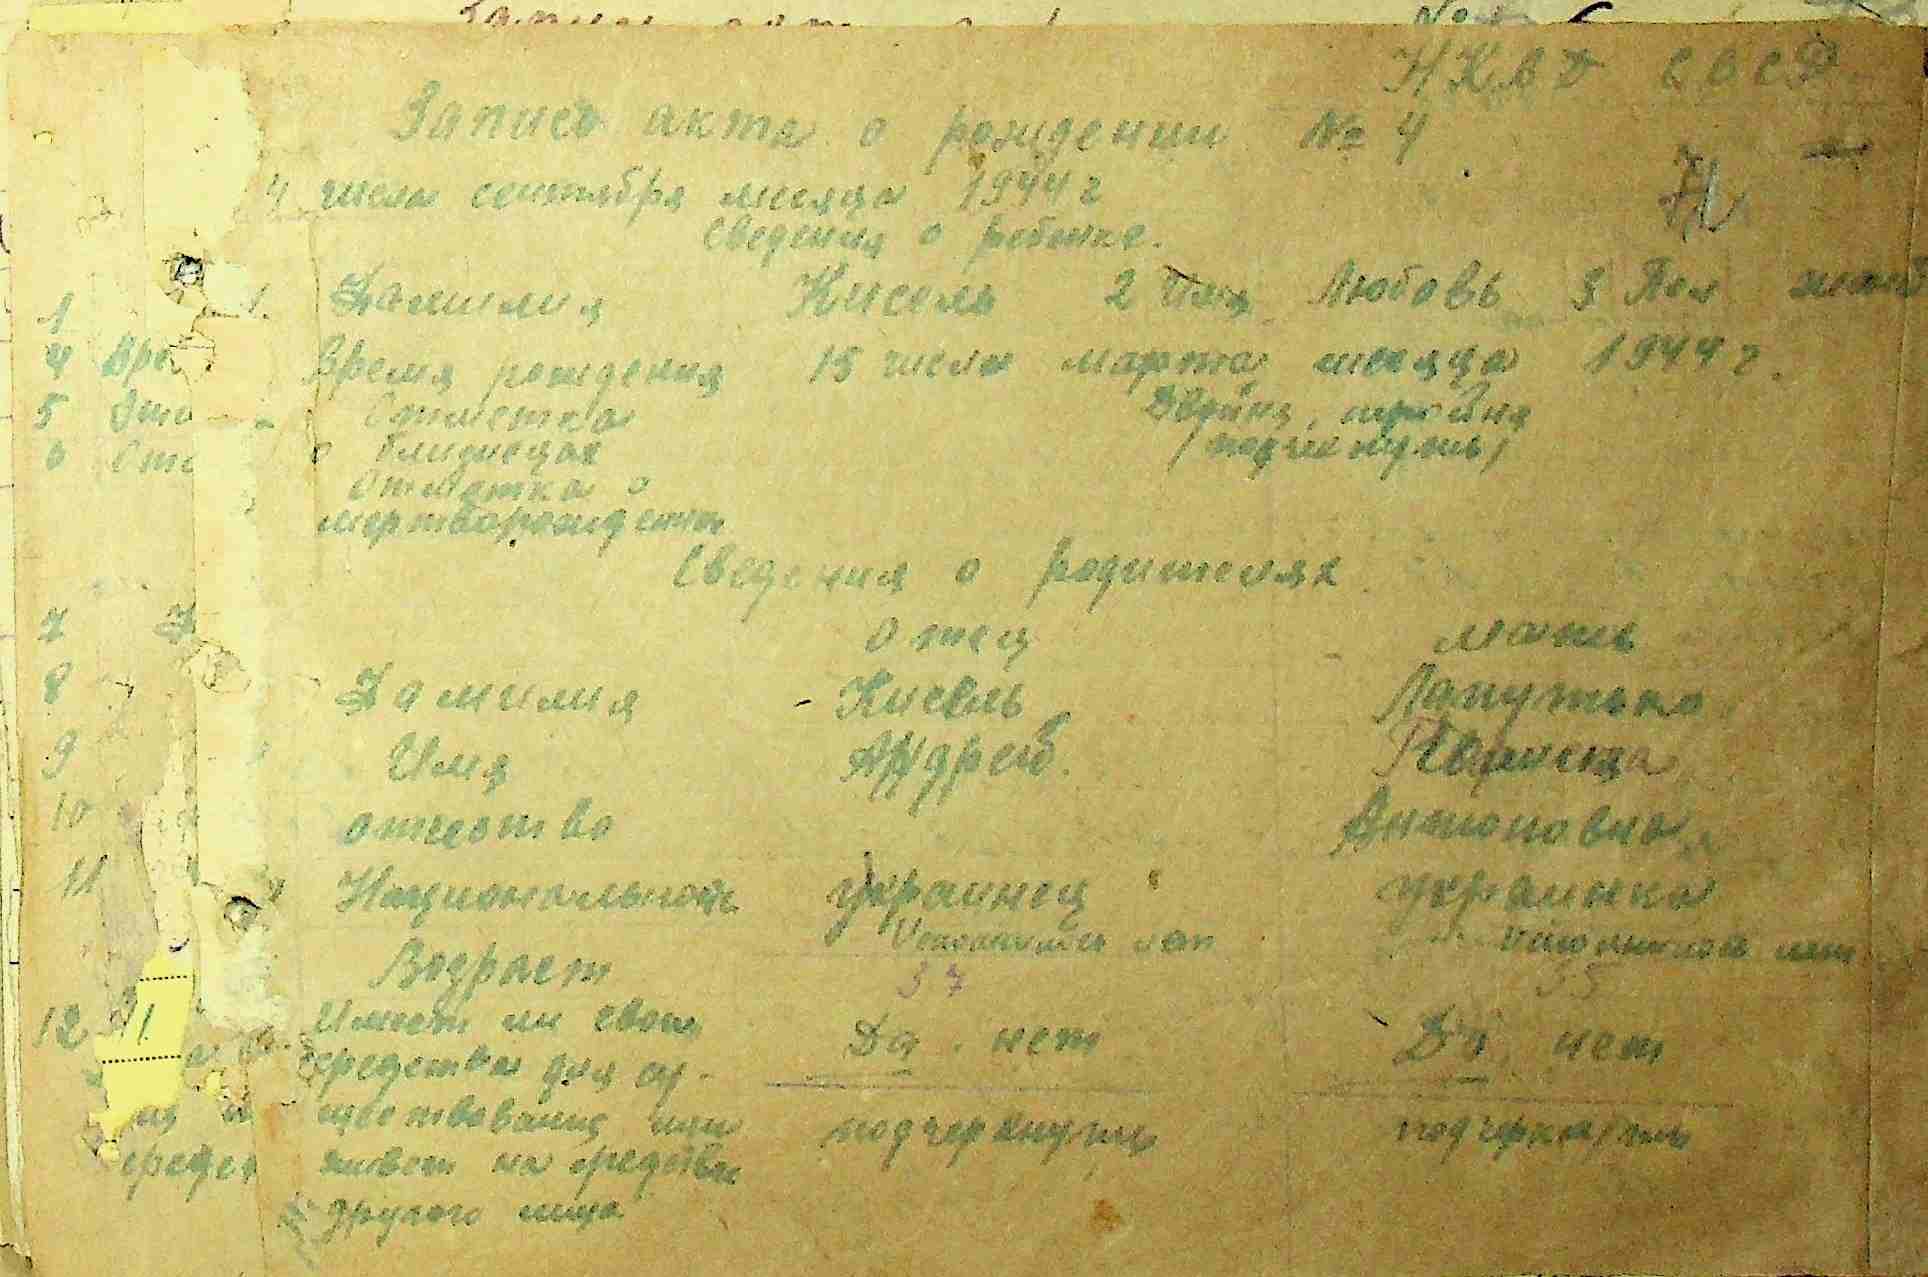 НКВД СССР
Запись акта о рождении № 4
4 числа сентября месяца 1944 г
Сведения о ребенке.
1. Фамилия Кисель 2 Имя Любовь 3 Пол
Время рождения 15 числа марта месяца 1944 г.
Отметка о близнецах Двойня, тройня (подчеркнуть)
Отметка о
мертворожден
Сведения о родителях
отец мать
Фамилия Кисель Лапутько
Имя Андрей.
отчество Антоновна
Национальность украинец украинка
Возраст Исполнилось лет 37 Исполнилось лет 35
Имеет ли свои Да. нет Да, нет
средства для су-
ществования или подчеркнуть подчеркнуть
живет на средства
другого лица
1
4 Вре
5 Отм
6 Отм
7 Ф
8
9
10
11
12